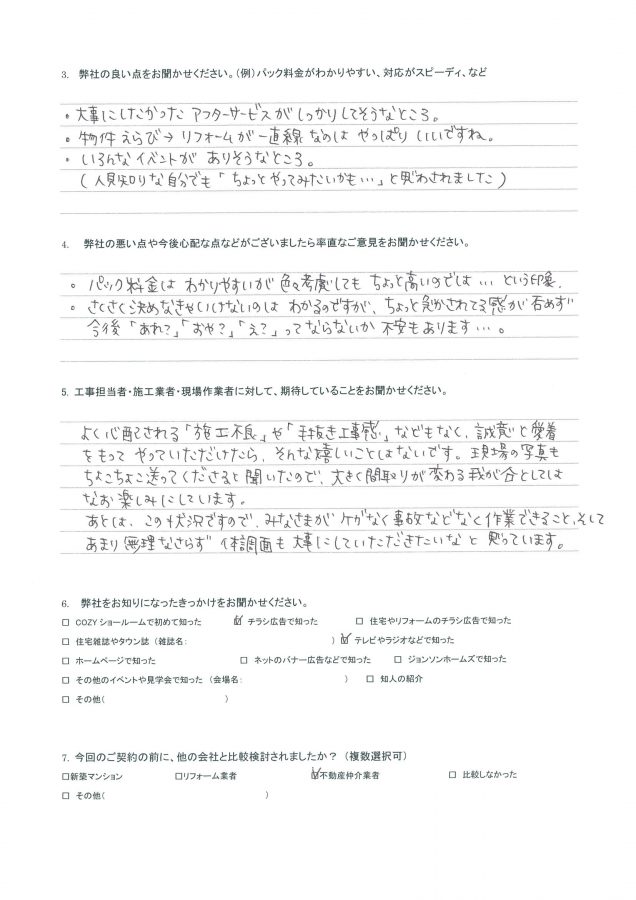 3. 弊社の良い点をお聞かせください。（例）パック料金がわかりやすい、対応がスピーディ、など
・大事にしたかったアフターサービスがしっかりしてそうなところ。
・物件えらび→リフォームが一直線なのは やっぱりいいですね。
・いろんなイベントが ありそうなところ。
（人見知りな自分でも「ちょっとやってみたいかも…」と思わされました）
4. 弊社の悪い点や今後心配な点などがございましたら率直なご意見をお聞かせください。
・パック料金は わかりやすいが 色々考慮しても ちょっと高いのでは… という印象.
・さくさく決めなきゃいけないのは わかるのですが、ちょっと急かされてる感が否めず
今後「あれ?」「おや?」「え?」ってならないか 不安もあります…。
5. 工事担当者・施工業者・現場作業者に対して、期待していることをお聞かせください。
よく心配される「施工不良」や「手抜き工事感」などもなく、誠意と愛着
をもって やっていただけたら、そんな嬉しいことはないです。現場の写真も
ちょこちょこ送ってくださると聞いたので、大きく間取りが変わる我が家としては
なお楽しみにしています。
あとは、この状況ですので、みなさまがケガなく事故などなく作業できること、そして
あまり無理なさらず 体調面も大事にしていただきたいなと思っています。
6. 弊社をお知りになったきっかけをお聞かせください。
□ COZYショールームで初めて知った ☑ チラシ広告で知った □ 住宅やリフォームのチラシ広告で知った
□ 住宅雑誌やタウン誌（雑誌名： ） ☑ テレビやラジオなどで知った
□ ホームページで知った □ ネットのバナー広告などで知った □ ジョンソンホームズで知った
□ その他のイベントや見学会で知った（会場名： ） □ 知人の紹介
□ その他（ ）
7. 今回のご契約の前に、他の会社と比較検討されましたか？（複数選択可）
□新築マンション □リフォーム業者 ☑不動産仲介業者 □ 比較しなかった
□ その他（ ）